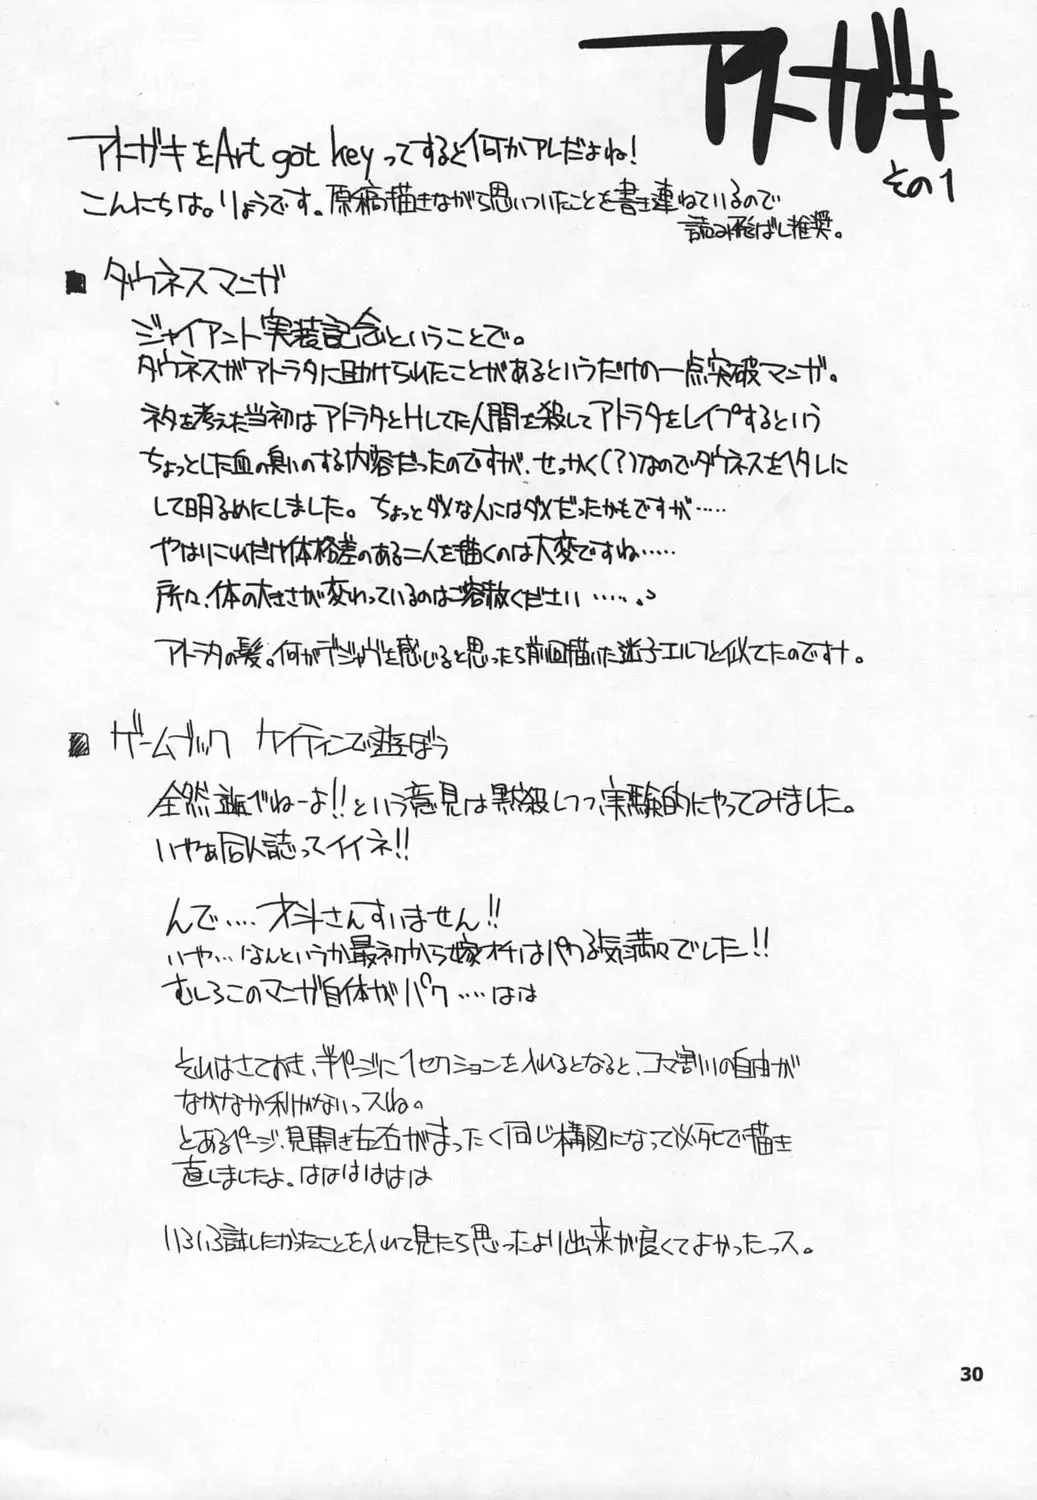 アトガキ
その1
アトガキをArt got keyってすると何かアレだよね!
こんにちは。りょうです。原稿描きながら思いついたことを書き連ねているので
読み飛ばし推奨。
■ ダウネスマンガ
ジャイアント実装記念ということで。
ダウネスがアトラタに助けられたことがあるというだけの一点突破マンガ。
ネタを考えた当初はアトラタとHしてた人間を殺してアトラタをレイプするという
ちょっとした血の臭いのする内容だったのですが、せっかく(?)なのでダウネスをヘタレに
して明るめにしました。ちょっとダメな人にはダメだったかもですが……
やはりこれだけ体格差のある二人を描くのは大変ですね……
所々、体の大きさが変わっているのはご容赦ください……。
アトラタの髪。何かデジャヴを感じると思ったら前回描いた迷子エルフと似てたのです。
■ ゲームブック ケイティンで遊ぼう
全然遊べねーよ!!という意見は黙殺しつつ実験的にやってみました。
いやぁ同人誌ってイイネ!!
んで……才斗さんすいません!!
いや…なんというか最初から嫁オチはパクる気満々でした!!
むしろこのマンガ自体がパク……はは
それはさておき、半ページに1セクションを入れるとなると、コマ割りの自由が
なかなか利かないっスね。
とあるページ、見開き左右がまったく同じ構図になって必死で描き
直しましたよ。はははははは
いろいろ試したかったことを入れて見たら思ったより出来が良くてよかったっス。
30